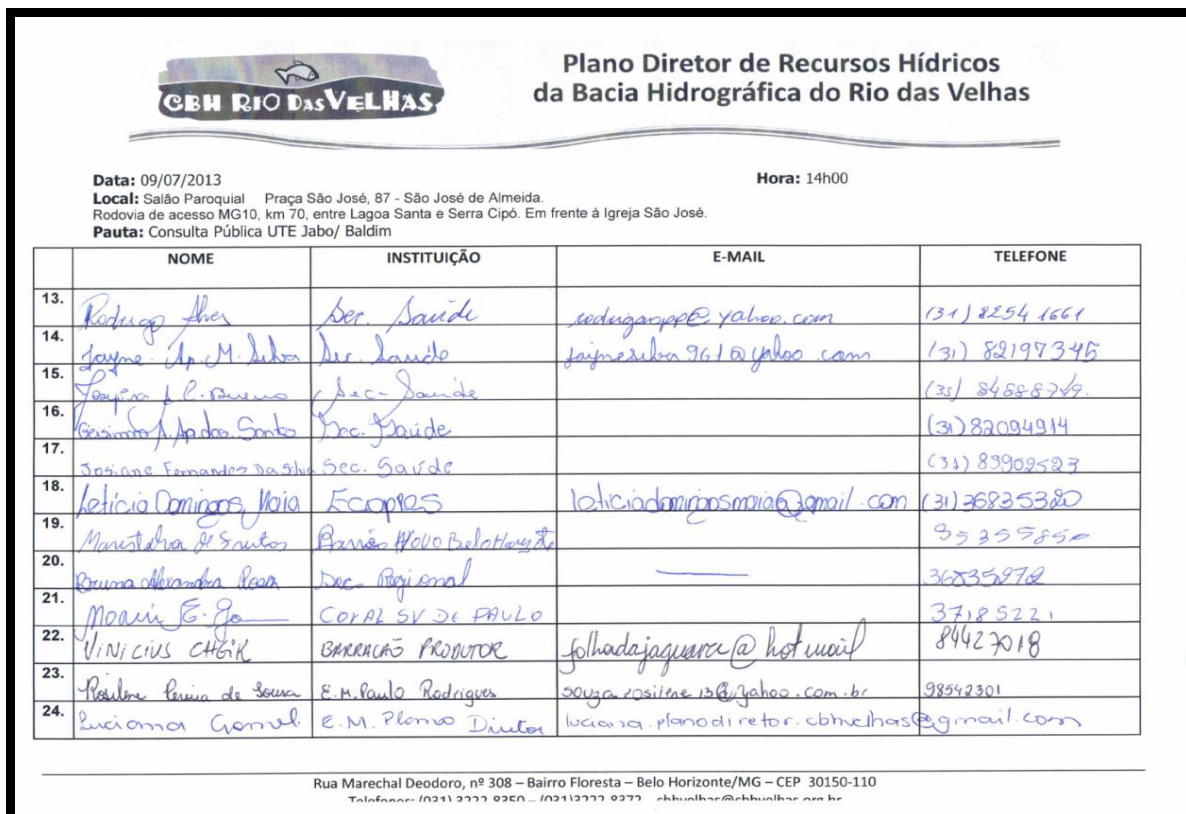 CBH RIO DAS VELHAS
Plano Diretor de Recursos Hídricos
da Bacia Hidrográfica do Rio das Velhas
Data: 09/07/2013 Hora: 14h00
Local: Salão Paroquial Praça São José, 87 - São José de Almeida.
Rodovia de acesso MG10, km 70, entre Lagoa Santa e Serra Cipó. Em frente à Igreja São José.
Pauta: Consulta Pública UTE Jabo/ Baldim
NOME INSTITUIÇÃO E-MAIL TELEFONE
13. Rodrigo Alves Sec. Saúde (31) 8254 1661
14. Jayne Ap. M. Silva Sec. Saúde jaynesilva961@yahoo.com (31) 82197345
15. Sec. Saúde
16. Ap dos Santos Sec. Saúde (31) 82094914
17. Josiane Fernandes Da Silva Sec. Saúde (31) 83902523
18. Letícia Domingos Maia Ecopres leticiadomingosmaia@gmail.com (31) 36835320
19. Bairro Novo Belo Horizonte
20. Bruna Alexandra Rosa Sec. Regional
21. Moacir COPAL SV DE PAULO 37185221
22. VINICIUS CHEIK BARRACÃO PRODUTOR folhadajaguara@hotmail 84427018
23. Rosilene Pereira de Sousa E.M. Paulo Rodrigues souza.rosilene13@yahoo.com.br 98542301
24. Luciana Gomes E.M. Plano Diretor luciana.planodiretor.cbhvelhas@gmail.com
Rua Marechal Deodoro, nº 308 – Bairro Floresta – Belo Horizonte/MG – CEP 30150-110
Telefones: (031) 3222-8350 – (031)3222-8372 cbhvelhas@cbhvelhas.org.br